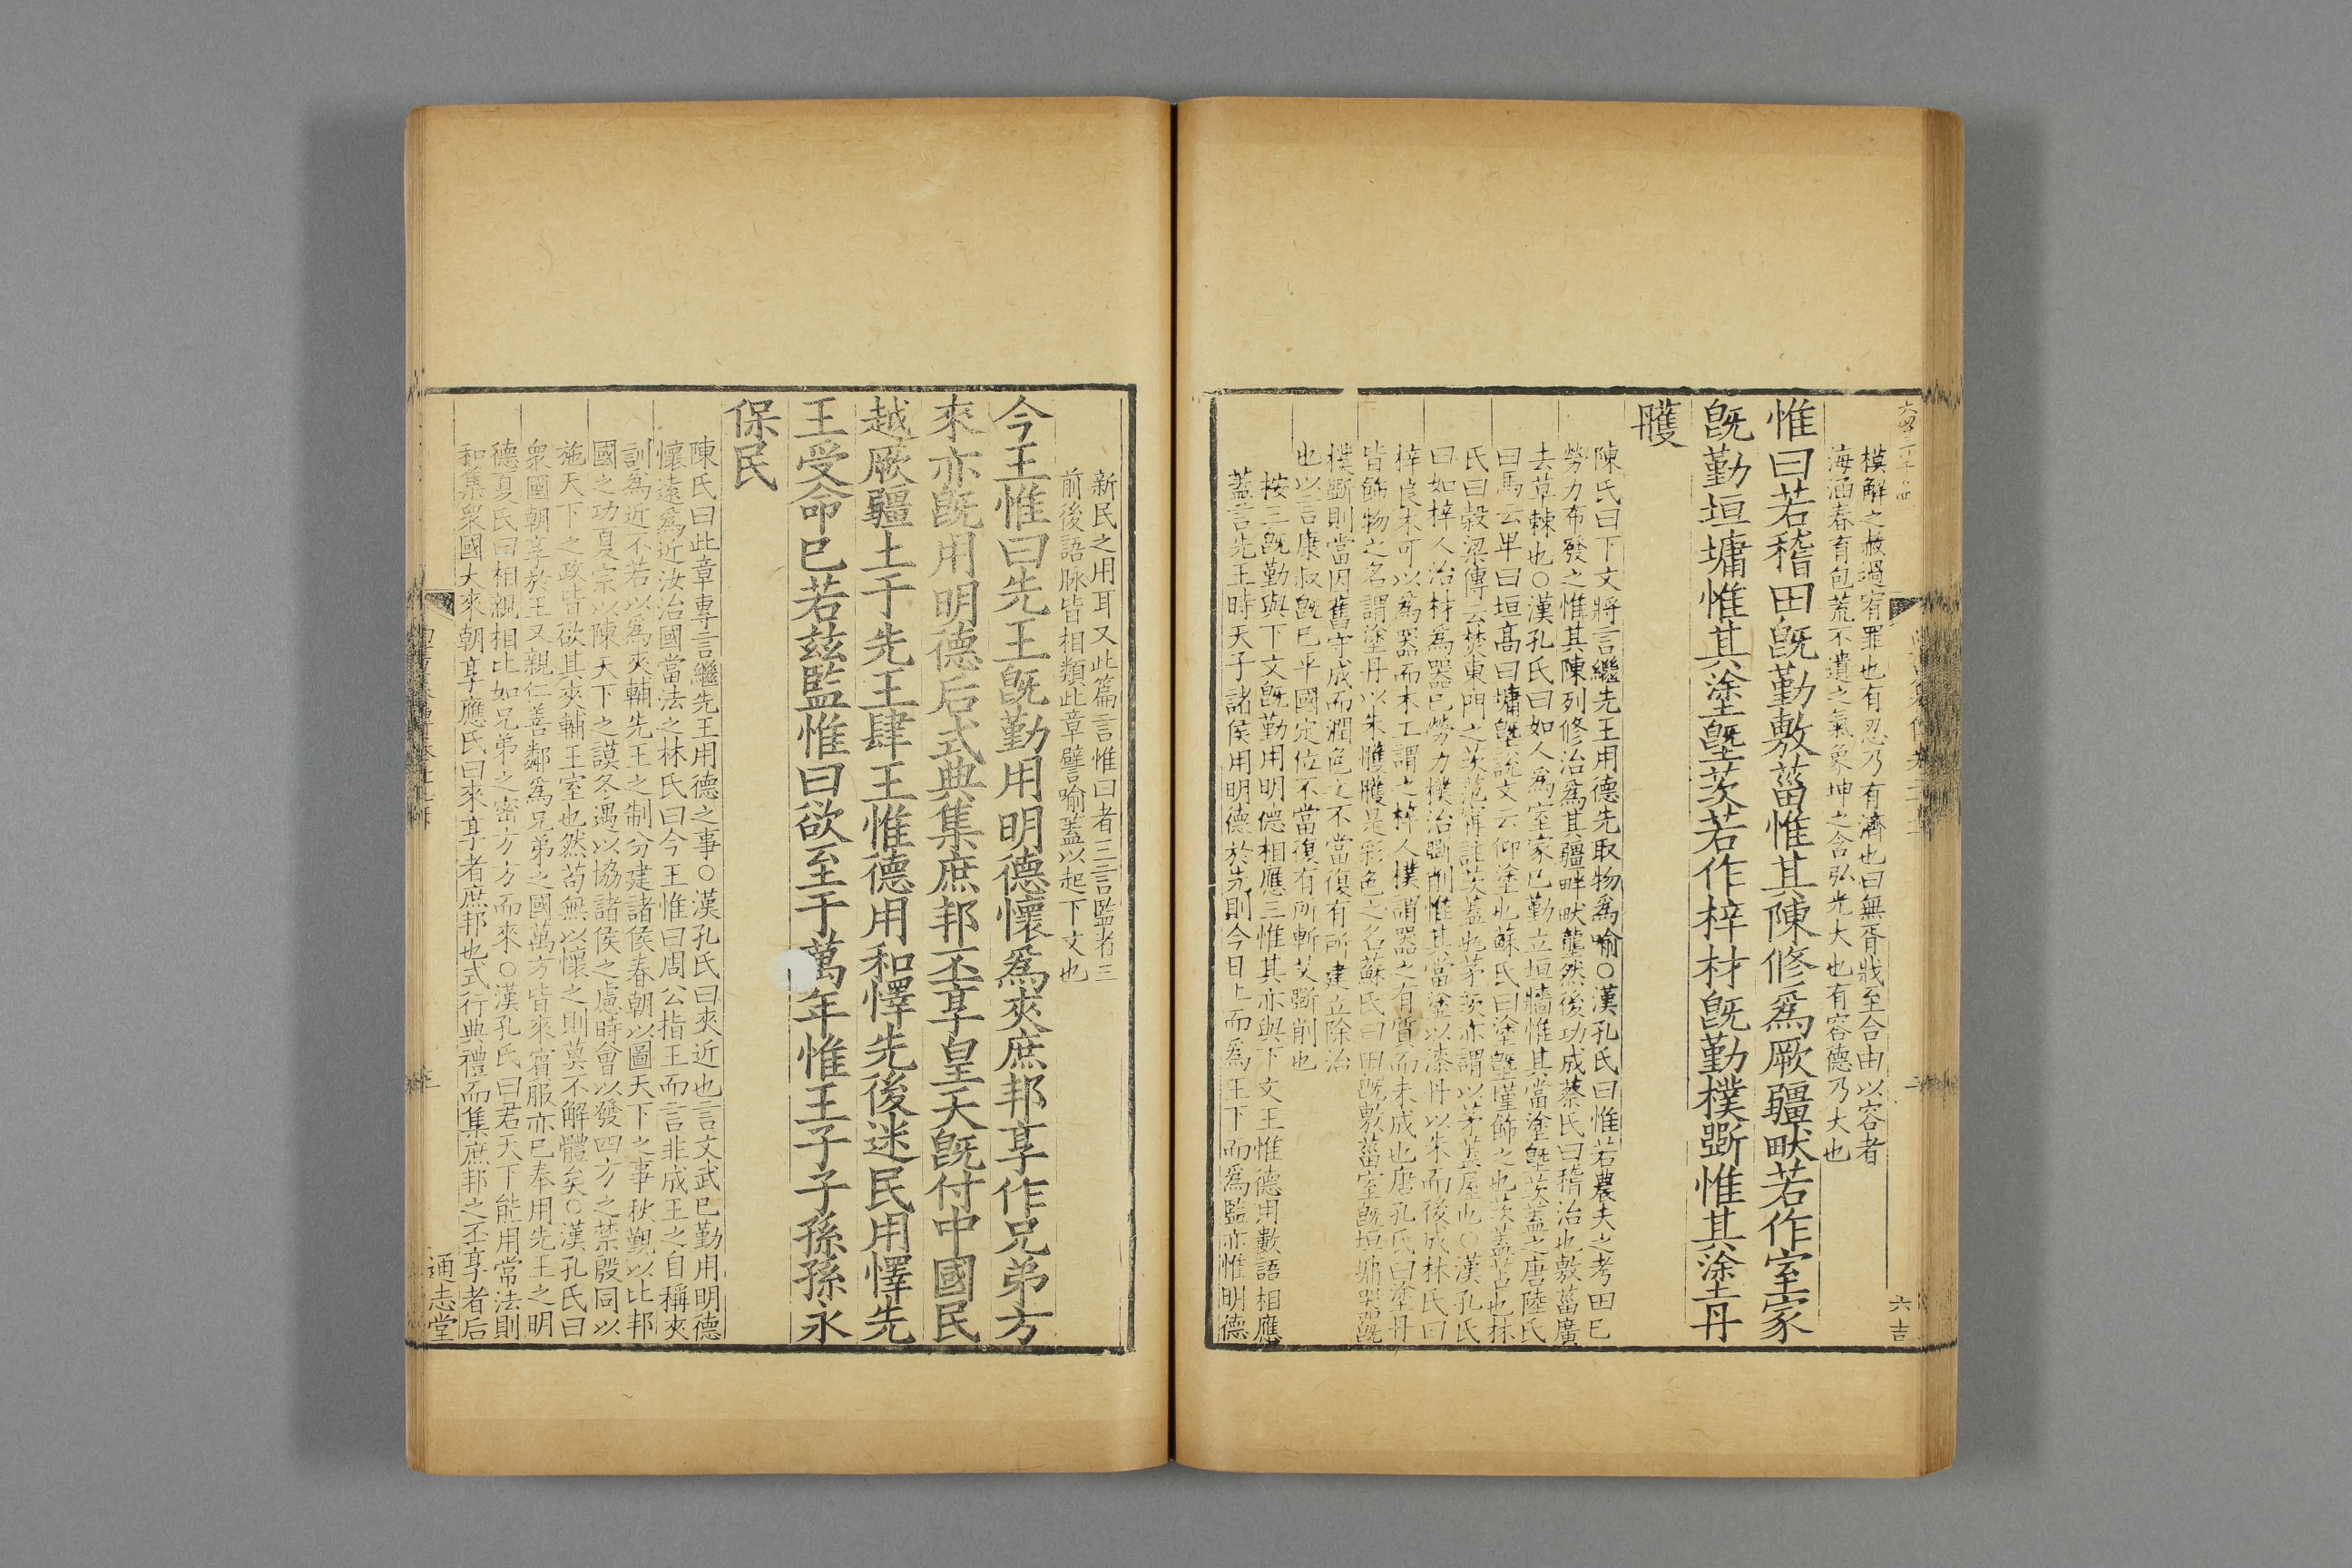 模解之赦過宥罪也有忍乃有濟也曰無胥戕至合由以容者
海涵春育包荒不遺之氣象坤之含弘光大也有容德乃大也
惟曰若稽田旣勤敷菑惟其陳修爲厥疆畎若作室家
旣勤垣墉惟其塗塈茨若作梓材旣勤樸斲惟其塗丹
雘
陳氏曰下文將言繼先王用德先取物爲喻○漢孔氏曰惟若農夫之考田已
勞力布發之惟其陳列修治爲其疆畔畎壟然後功成蔡氏曰稽治也敷菑廣
去草棘也○漢孔氏曰如人爲室家已勤立垣牆惟其當塗塈茨蓋之唐陸氏
曰馬云卑曰垣高曰墉塈說文云仰塗也蘇氏曰塗塈墐飾之也茨蓋苫也林
氏曰穀梁傳云焚東門之茨范甯註茨蓋也茅茨亦謂以茅蓋屋也○漢孔氏
曰如梓人治材爲器已勞力樸治斲削惟其當塗以漆丹以朱而後成林氏曰
梓良木可以爲器而木工謂之梓人樸謂器之有質而未成也唐孔氏曰塗丹
皆飾物之名謂塗丹以朱雘雘是彩色之名蘇氏曰田旣敷菑室旣垣墉器旣
樸斲則當因舊守成而潤色之不當復有所建立除治
也以言康叔旣已平國定位不當復有所斬艾斲削也
按三旣勤與下文旣勤用明德相應三惟其亦與下文王惟德用數語相應
蓋言先王時天子諸侯用明德於先則今日上而爲王下而爲監亦惟明德
六吉
新民之用耳又此篇言惟曰者三言監者三
前後語脉皆相類此章譬喻蓋以起下文也
今王惟曰先王旣勤用明德懷爲夾庶邦享作兄弟方
來亦旣用明德后式典集庶邦丕享皇天旣付中國民
越厥疆土于先王肆王惟德用和懌先後迷民用懌先
王受命已若茲監惟曰欲至于萬年惟王子子孫孫永
保民
陳氏曰此章專言繼先王用德之事○漢孔氏曰夾近也言文武已勤用明德
懷遠爲近汝治國當法之林氏曰今王惟曰周公指王而言非成王之自稱夾
訓爲近不若以爲夾輔先王之制分建諸侯春朝以圖天下之事秋覲以比邦
國之功夏宗以陳天下之謨冬遇以協諸侯之慮時會以發四方之禁殷同以
施天下之政皆欲其夾輔王室也然苟無以懷之則莫不解體矣○漢孔氏曰
衆國朝享於王又親仁善鄰爲兄弟之國萬方皆來賓服亦已奉用先王之明
德夏氏曰相親相比如兄弟之密方方而來○漢孔氏曰君天下能用常法則
和集衆國大來朝享應氏曰來享者庶邦也式行典禮而集庶邦之丕享者后
通志堂